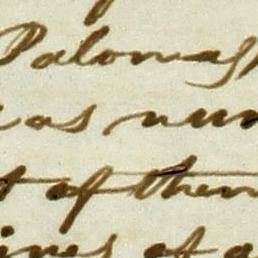 Palomas
as num
t of them
ines of a